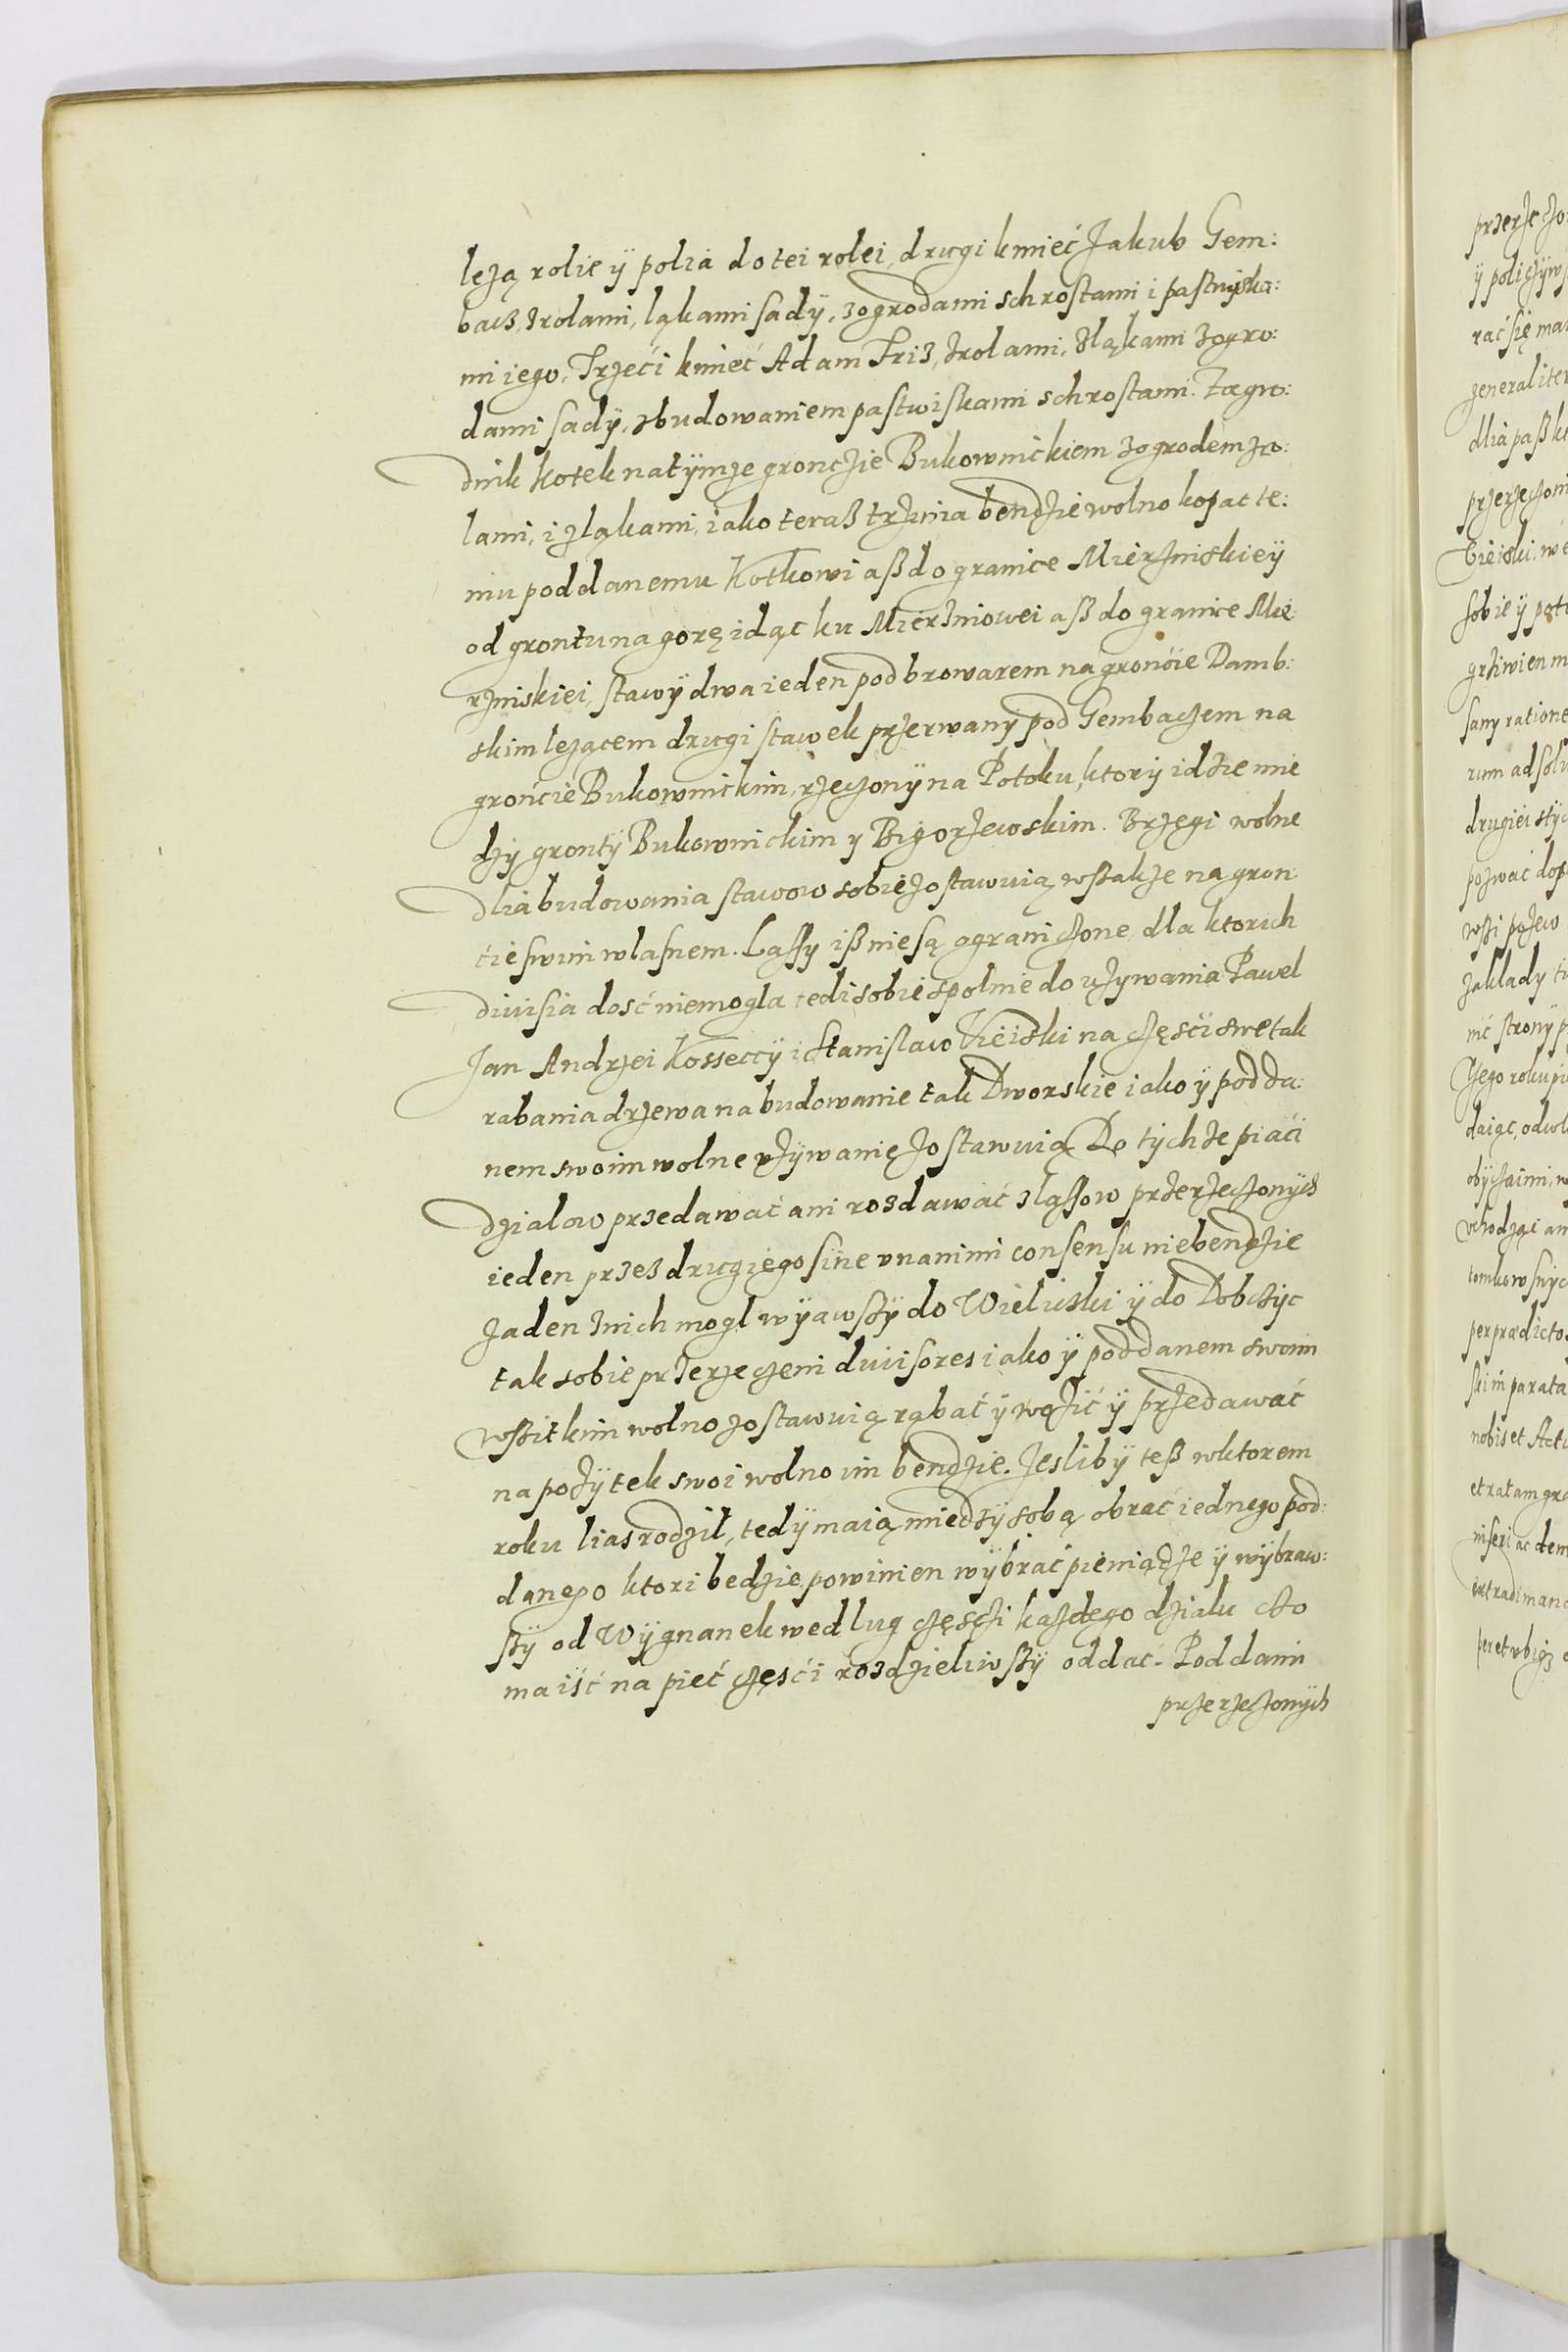 leżą rolie ÿ polia do tei rolei, drugi kmieć Jakub Gem:
bacz, zrolami, ląkami sadÿ, zogrodami schrostami i pastwiska:
mi iego, Trzeći kmieć Adam Friz, zrolami, zląkami zogro:
dami sadÿ, zbudowaniem pastwiskami schrostami. Zagro:
dnik Kotek na tÿmże gronczie Bukownickiem zogrodem zro:
lami, i zląkami, iako teraß trzima bendzie wolno kopac te:
mu poddanemu Kotkowi aß do granice Mierzniskieÿ
od grontu na gorę idąc ku Mierzniowei aß do granice Mie:
rzniskiei, stawÿ dwa ieden pod browarem na gronćie Damb:
skim leżącem drugi stawek przerwany pod Gembaczem na
grońcie Bukownickim, rzeczonÿ na Potoku, ktorÿ idzie mie
dzÿ grontÿ Bukownickim y Bigorzewskim. Brzegi wolne
dlia budowania stawow sobie zostawuią wßakże na gron
cie swim wlasnem. Lassy iß nie są ograniczone, dla ktorich
diuisia dosć niemogla tedi sobie spolnie do używania Pawel
Jan Andrzei Kosseccÿ i Stanislaw Vieiski na częsći swe tak
rabania drzewa na budowanie tak Dworskie iako ÿ podda:
nem swoim wolne vżÿwanię zostawuią Do tÿchże piaći
dzialow przedawać ani rozdawać zlassow przerzeczonÿch
ieden przez drugiego sine vnanimi consensu niebendzie
żaden znich mogl wÿiawßÿ do Wieliczki ÿ do Dobczÿc
tak sobie przerzeczeni diuisores iako ÿ poddanem swoim
wßitkim wolno zostawuią rąbać ÿ wozić ÿ przedawać
na pożÿtek swoi wolno im bendzie. Jesliby teß wktorem
roku lias rodzil, tedÿ maią miedzÿ sobą obrać iednego pod:
danego ktori bedzie powinien wÿbrać pieniądze ÿ wÿbraw:
ßÿ od Wÿgnanek wedlug częsczi każdego dzialu czo
ma iść na pieć częsći rozdzieliwßÿ oddać. Poddami
przerzeczonÿch